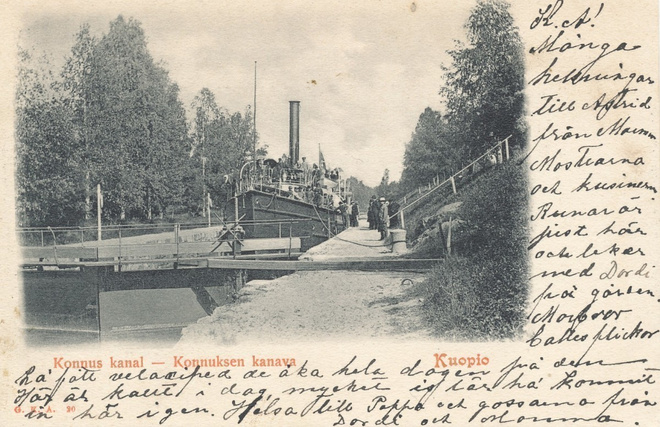 K. A!
Många
helsningar
till Astrid
från Mamma
Mostrarna
och kusinerna
Runar är
just här
och leker
med Dordi
på gården
Morbror
Calles flickor
Konnus kanal — Konnuksen kanava
Kuopio
ha fått velociped de åka hela dagen på den
Här är kallt i dag mycket is har kommit
G. R. A. 90
in här igen. Helsa till Pappa och gossarna från
Dordi och Mamma.